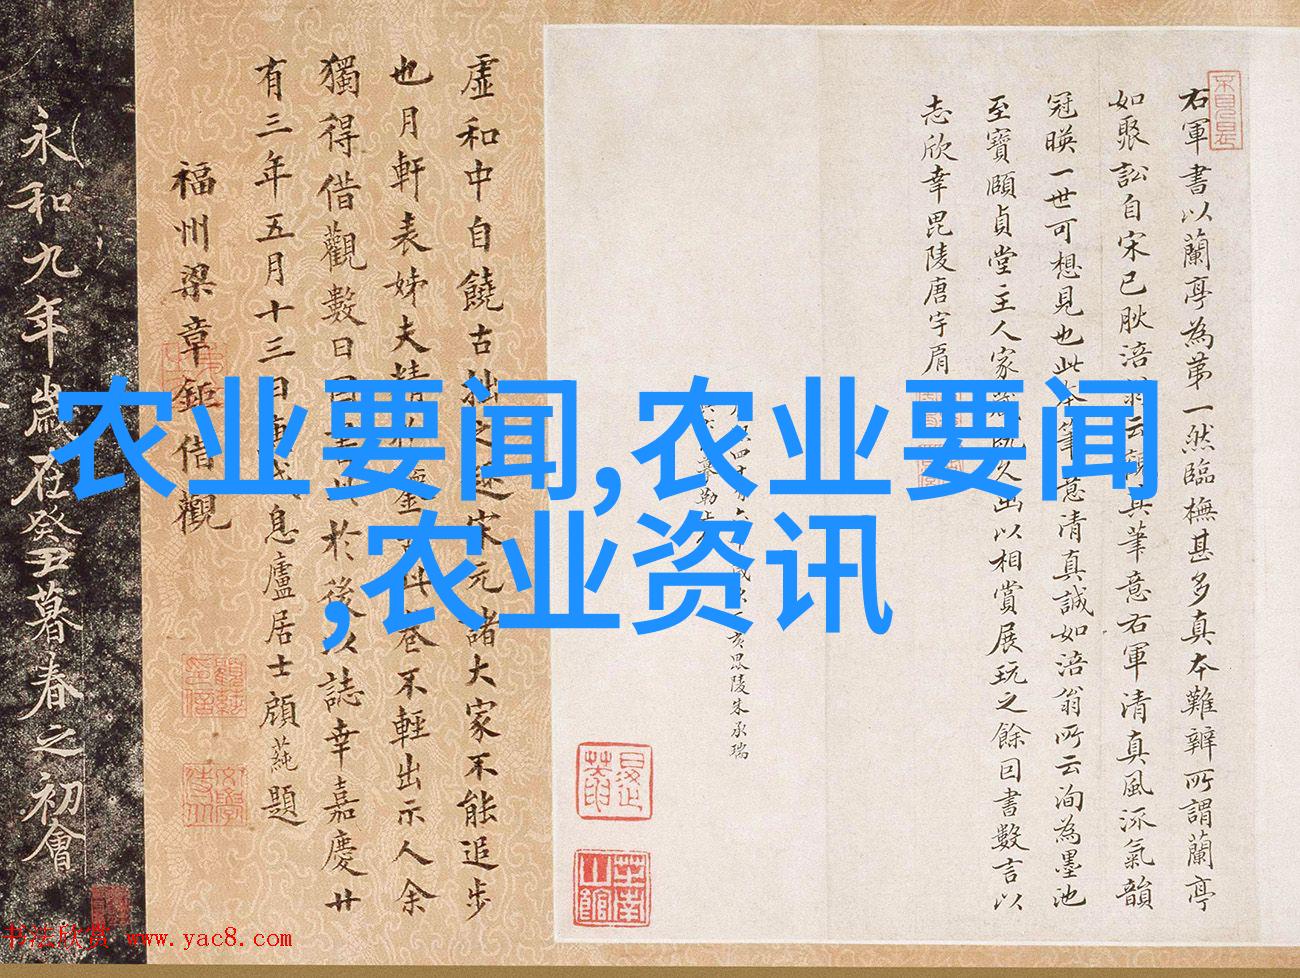 农业要闻,农业要闻
,农业资讯
右軍書以蘭亭為第一然臨橅甚多真本難辨所謂蘭亭
如聚訟自宋已肰涪翁云觀其筆意右軍清真風流氣韻
冠暎一世可想見也此本筆意清真誠如涪翁所云洵為墨池
至寶頤貞堂主人家藏既久出以相賞展玩之餘因書數言以
志欣幸毘陵唐宇肩
亥毘陵朱承瑞
虛和中自饒古拙之趣宋元諸大家不能追步
也月軒表姊夫精 不輕出示人余
獨得借觀數日 於後以誌幸嘉慶廿
有三年五月十三日 息廬居士顧蒓題
福州梁章鉅借觀
永和九年歲在癸丑暮春之初會
书法欣赏 www.yac8.com